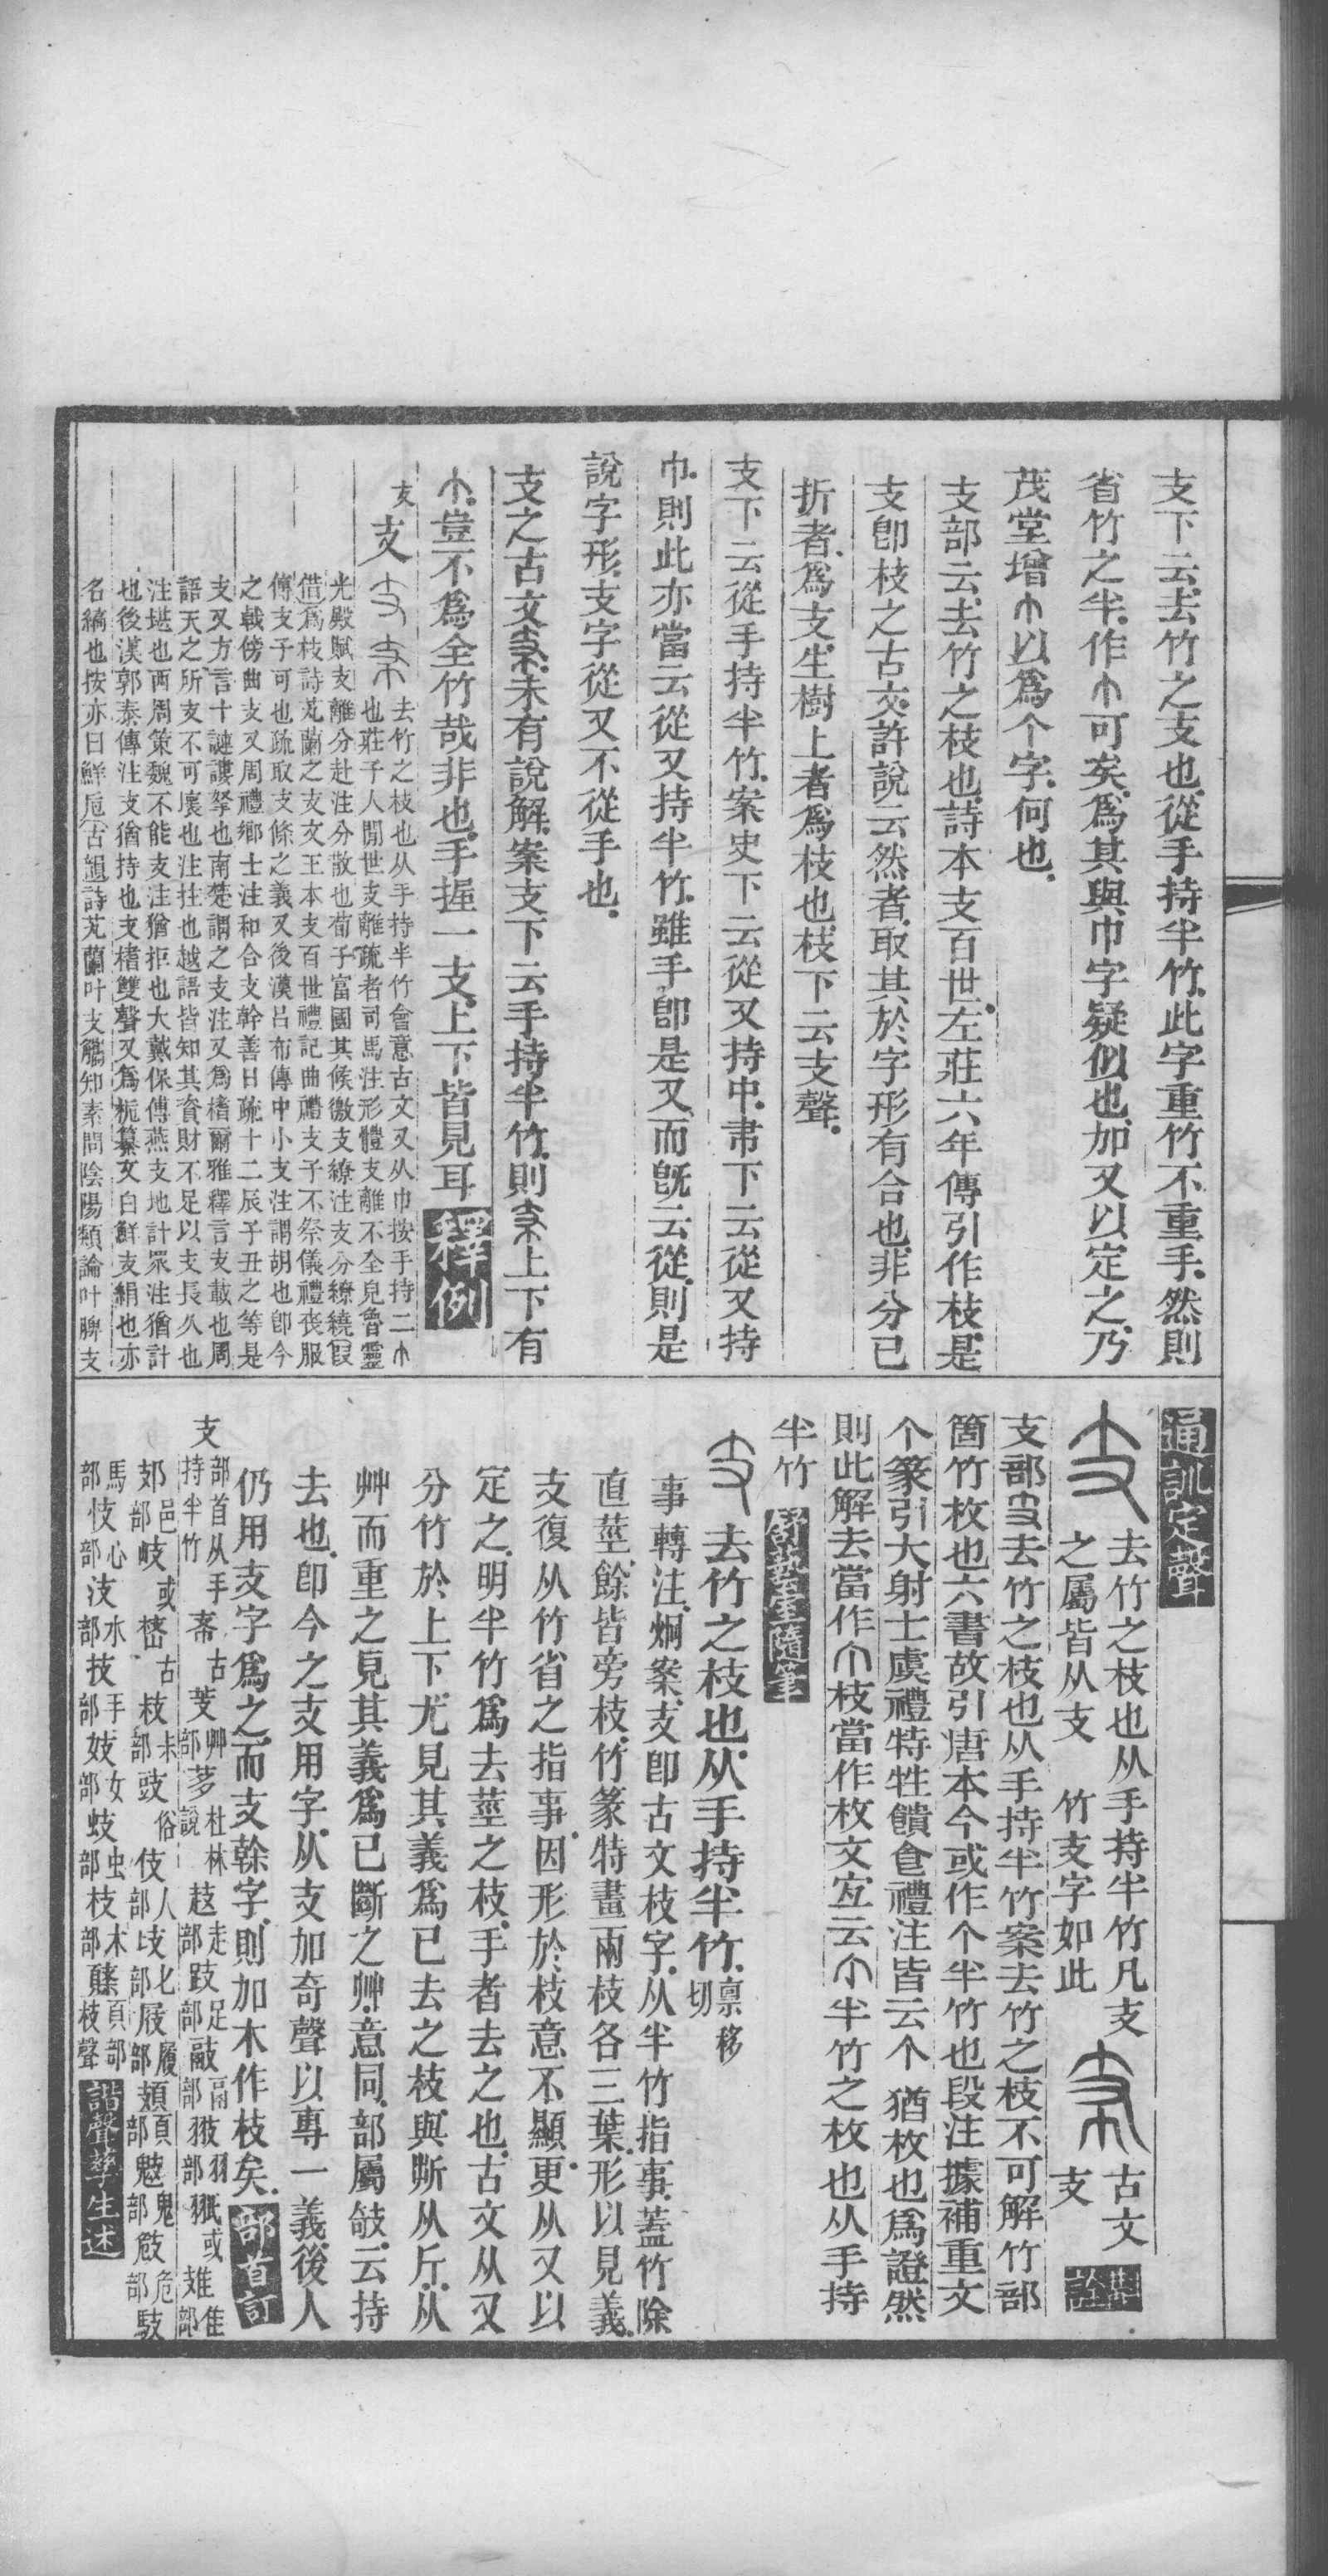 支下云去竹之支也從手持半竹此字重竹不重手然則
省竹之半作𠂹可矣爲其與巾字疑似也加又以定之乃
茂堂增以爲个字何也
支部云去竹之枝也詩本支百世左莊六年傳引作枝是
支卽枝之古文許說云然者取其於字形有合也非分已
折者爲支生樹上者爲枝也枝下云支聲
支下云從手持半竹案史下云從又持中帇下云從又持
巾則此亦當云從又持半竹雖手卽是又而旣云從則是
說字形支字從又不從手也
支之古文未有說解案支下云手持半竹則上下有
豈不爲全竹哉非也手握一支上下皆見耳 釋例
支 支 去竹之枝也从手持半竹會意古文又从巾按手持二
也莊子人閒世支離疏者司馬注形體支離不全皃魯靈
光殿賦支離分赴注分散也荀子富國其候徼支繚注支分繚繞叚
借爲枝詩芄蘭之支文王本支百世禮記曲禮支子不祭儀禮喪服
傳支子可也疏取支條之義又後漢呂布傳中小支注謂胡也卽今
之戟傍曲支又周禮鄉士注和合支幹善日疏十二辰子丑之等是
支又方言十謰謱拏也南楚謂之支注又爲榰爾雅釋言支載也周
語天之所支不可壞也注拄也越語皆知其資財不足以支長久也
注堪也西周策魏不能支注猶拒也大戴保傅燕支地計眾注猶計
也後漢郭泰傳注支猶持也支榰雙聲又爲梔纂文白鮮支絹也亦
名縞也按亦曰鮮卮古韻詩芄蘭叶支觿知素問陰陽類論叶脾支
通訓定聲
去竹之枝也从手持半竹凡支
之屬皆从支 竹支字如此 古文
支 甚詮
支部去竹之枝也从手持半竹案去竹之枝不可解竹部
箇竹枚也六書故引唐本今或作个半竹也段注據補重文
个篆引大射士虞禮特牲饋食禮注皆云个猶枚也爲證然
則此解去當作枝當作枚文宐云半竹之枚也从手持
半竹 舒蓺室隨筆
去竹之枝也从手持半竹 章移切
事轉注炯案支卽古文枝字从半竹指事蓋竹除
直莖餘皆旁枝竹篆特畫兩枝各三葉形以見義
支復从竹省之指事因形於枝意不顯更从又以
定之明半竹爲去莖之枝手者去之也古文从又
分竹於上下尤見其義爲已去之枝與斯从斤从
艸而重之見其義爲已斷之艸意同部屬攲云持
去也卽今之支用字从支加奇聲以專一義後人
仍用支字爲之而支榦字則加木作枝矣 部首訂
支 部首从手持半竹 古 芰 艸部 茤 杜林說 𧺆 走部 跂 足部 㩽 鬲部 翄 羽部 𦐊 或 雄 隹部
郂 邑部 岐 或 㟚 古 枝 尗部 豉 俗 伎 人部 𠦬 匕部 屐 履部 頍 頁部 鬾 鬼部 𡰈 危部 馶
馬部 忮 心部 汥 水部 技 手部 妓 女部 蚑 虫部 枝 木部 頁部枝聲 諧聲孳生述